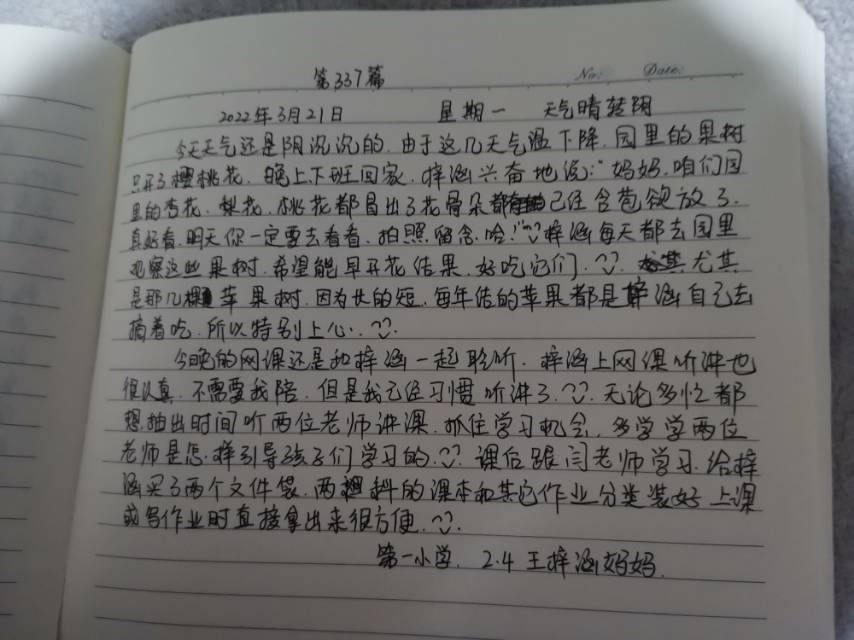 第337篇
No: Date:
2022年3月21日 星期一 天气晴转阴
今天天气还是阴沉沉的.由于这几天气温下降.园里的果树
只开了樱桃花.晚上下班回家.梓涵兴奋地说:"妈妈,咱们园
里的杏花.梨花.桃花都冒出了花骨朵已经含苞欲放了.
真好看.明天你一定要去看看.拍照留念.哈!"梓涵每天都去园里
观察这些果树.希望能早开花结果.好吃它们.尤其
是那几棵苹果树.因为长的短.每年结的苹果都是梓涵自己去
摘着吃.所以特别上心.
今晚的网课还是和梓涵一起聆听.梓涵上网课听讲也
很认真.不需要我陪.但是我已经习惯听讲了.无论多忙都
想抽出时间听两位老师讲课.抓住学习机会.多学学两位
老师是怎样引导孩子们学习的.课后跟闫老师学习.给梓
涵买了两个文件袋.两科的课本和其它作业分类装好上课
或写作业时直接拿出来很方便.
第一小学.2.4王梓涵妈妈.